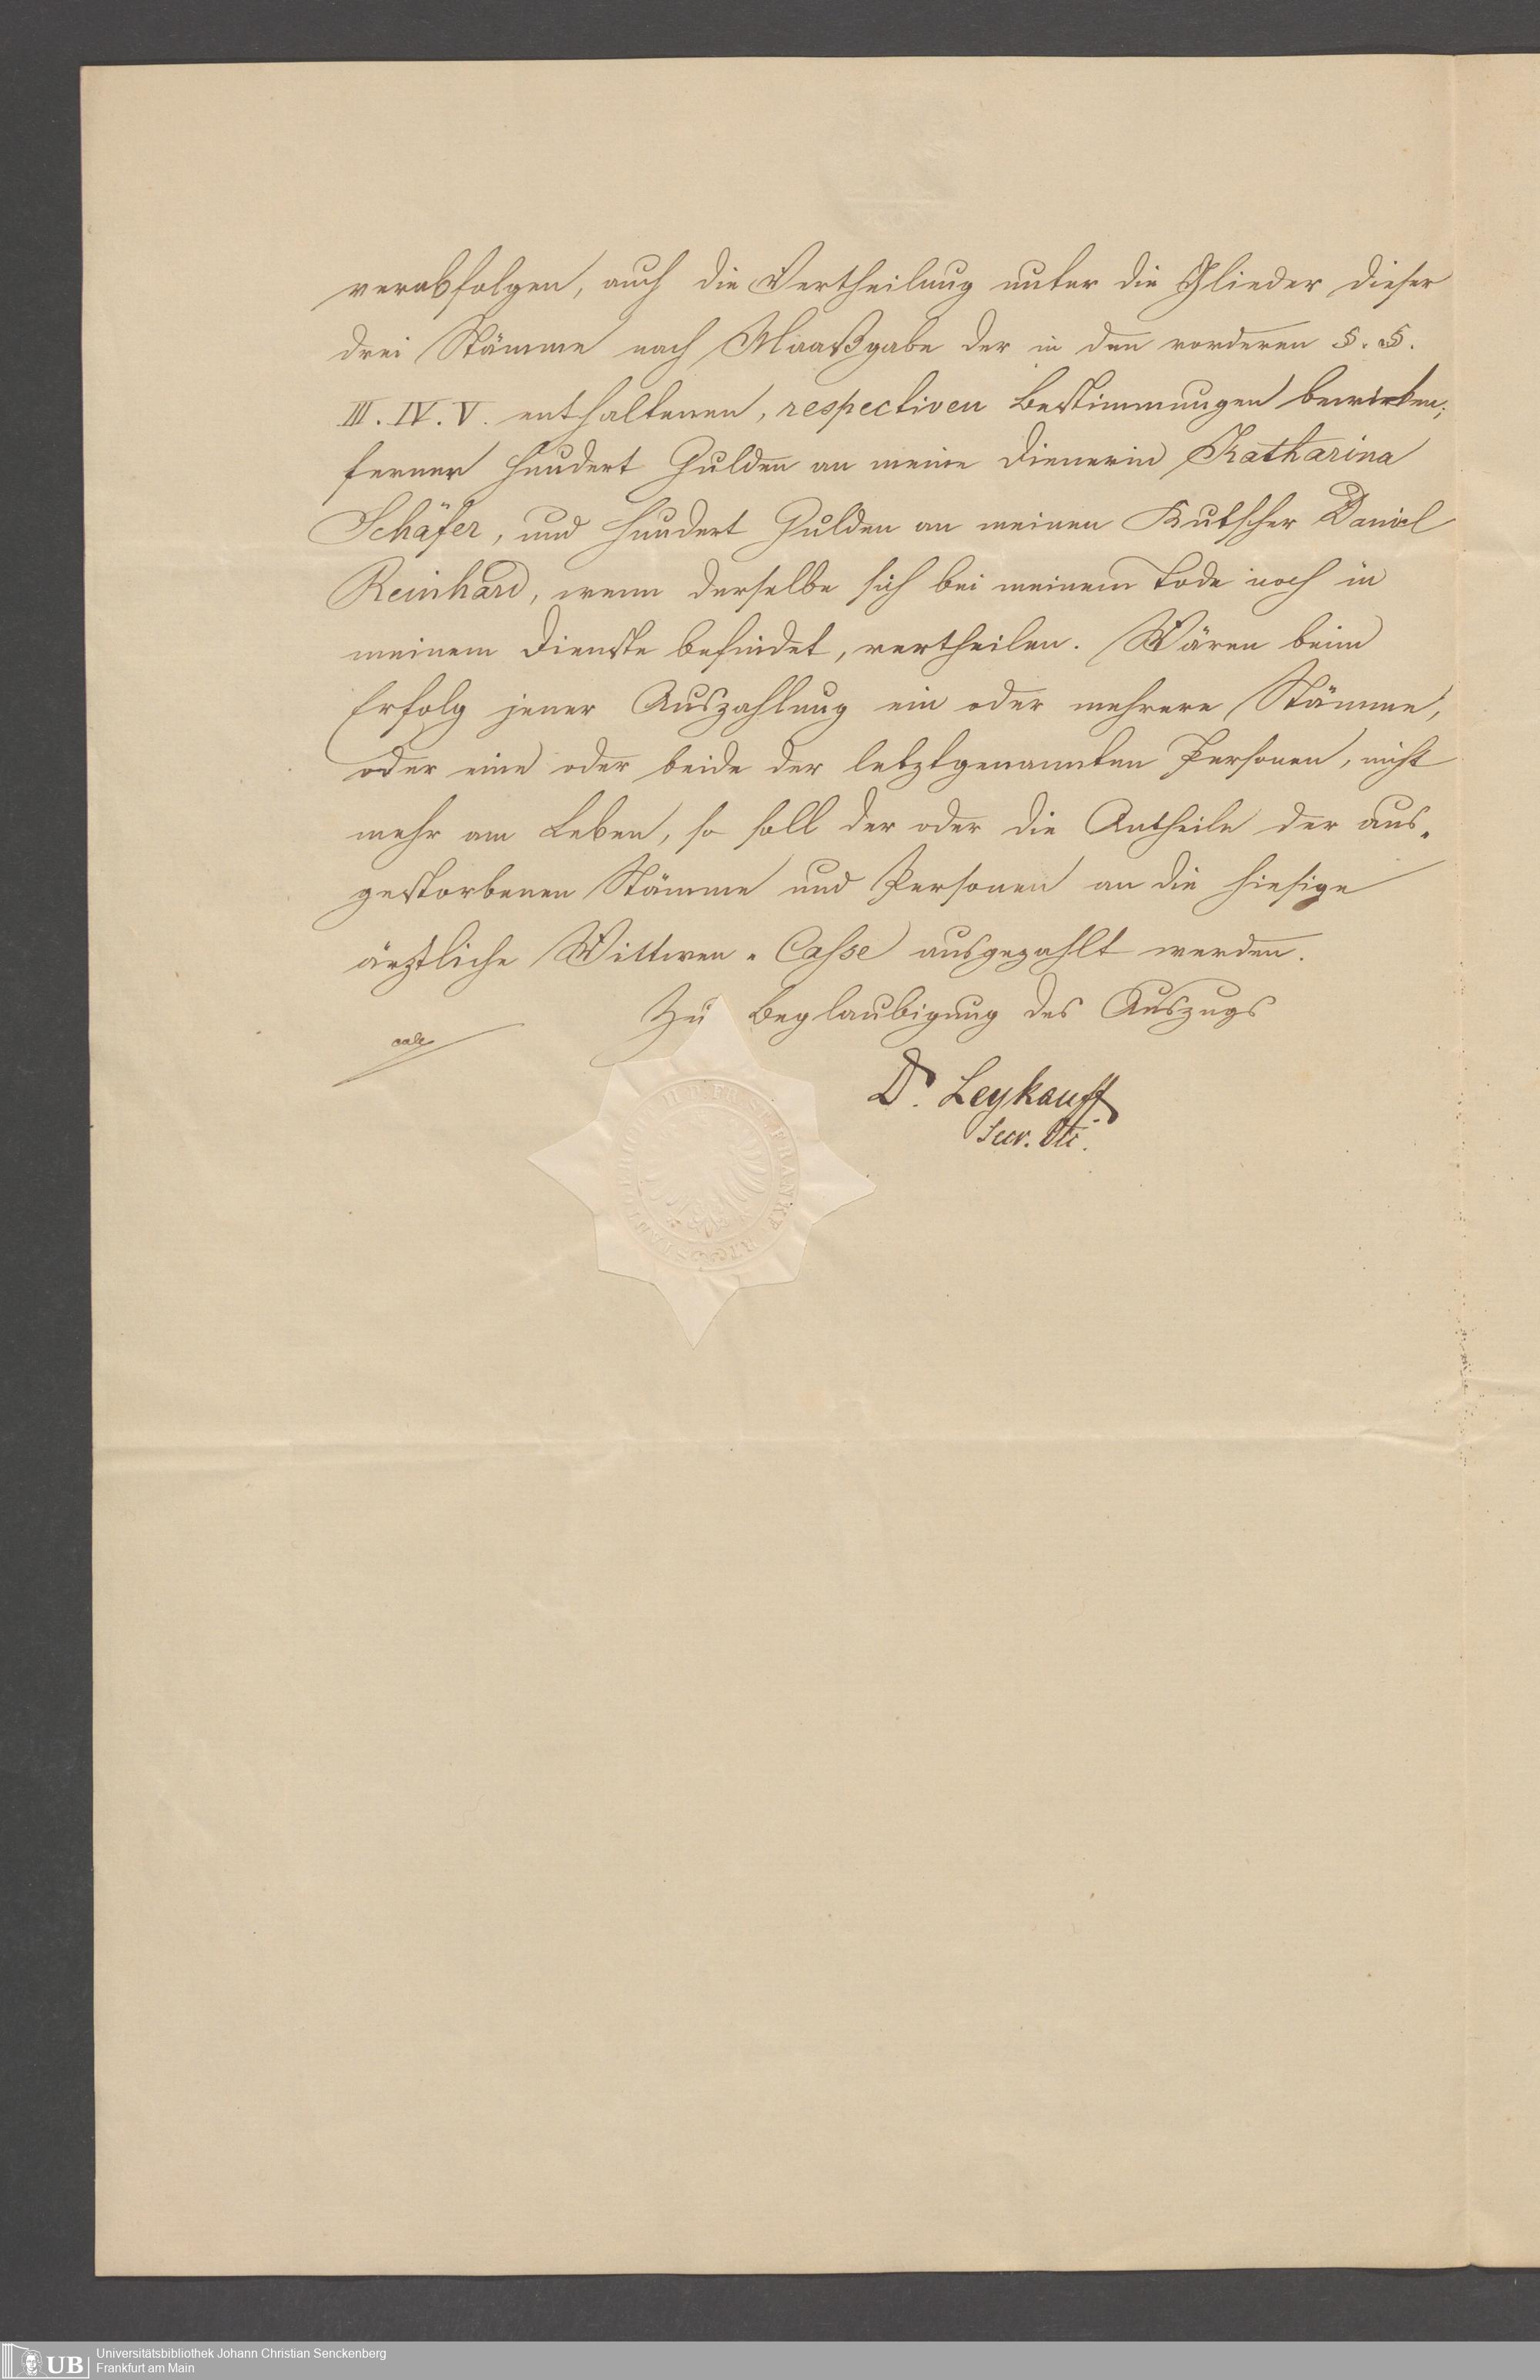 verabfolgen, auch die Vertheilung unter die Glieder dieser
drei Stämme nach Maaßgabe der in den vorderen §. §.
III. IV. V. enthaltenen, respectiven Bestimmungen bewirken;
ferner hundert Gulden an meine Dienerin Katharina
Schäfer, und hundert Gulden an meinen Kutscher Daniel
Reinhard, wenn derselbe sich bei meinem Tode noch in
meinem Dienste befindet, vertheilen. Wären beim
Erfolg jener Auszahlung ein oder mehrere Stämme,
oder eine oder beide der letztgenannten Personen, nicht
mehr am Leben, so soll der oder die Antheile der aus-
gestorbenen Stämme und Personen an die hiesige
ärztliche Wittwen-Casse ausgezahlt werden.
Zu Beglaubigung des Auszugs
Dr. Leykauff
UB
Universitätsbibliothek Johann Christian Senckenberg
Frankfurt am Main